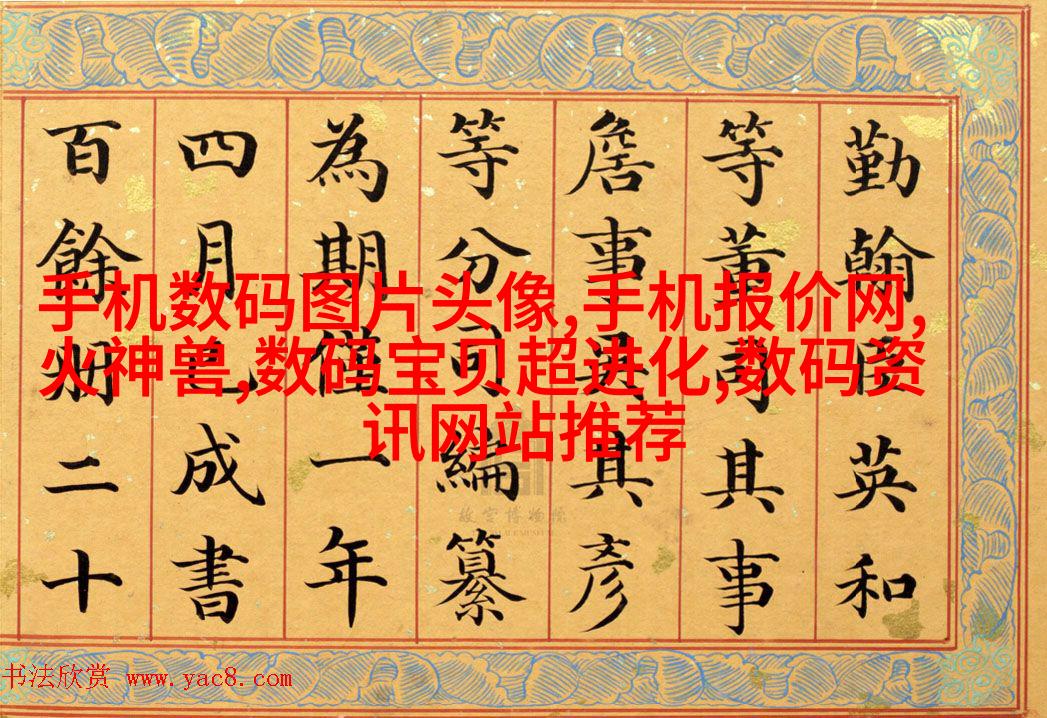 勤翰英和
等董司其事
詹事其彥
等分司編纂
為期僅一年
四月已成書
百餘冊二十
手机数码图片头像,手机报价网,
火神兽,数码宝贝超进化,数码资
讯网站推荐
故宫博物院
书法欣赏 www.yac8.com